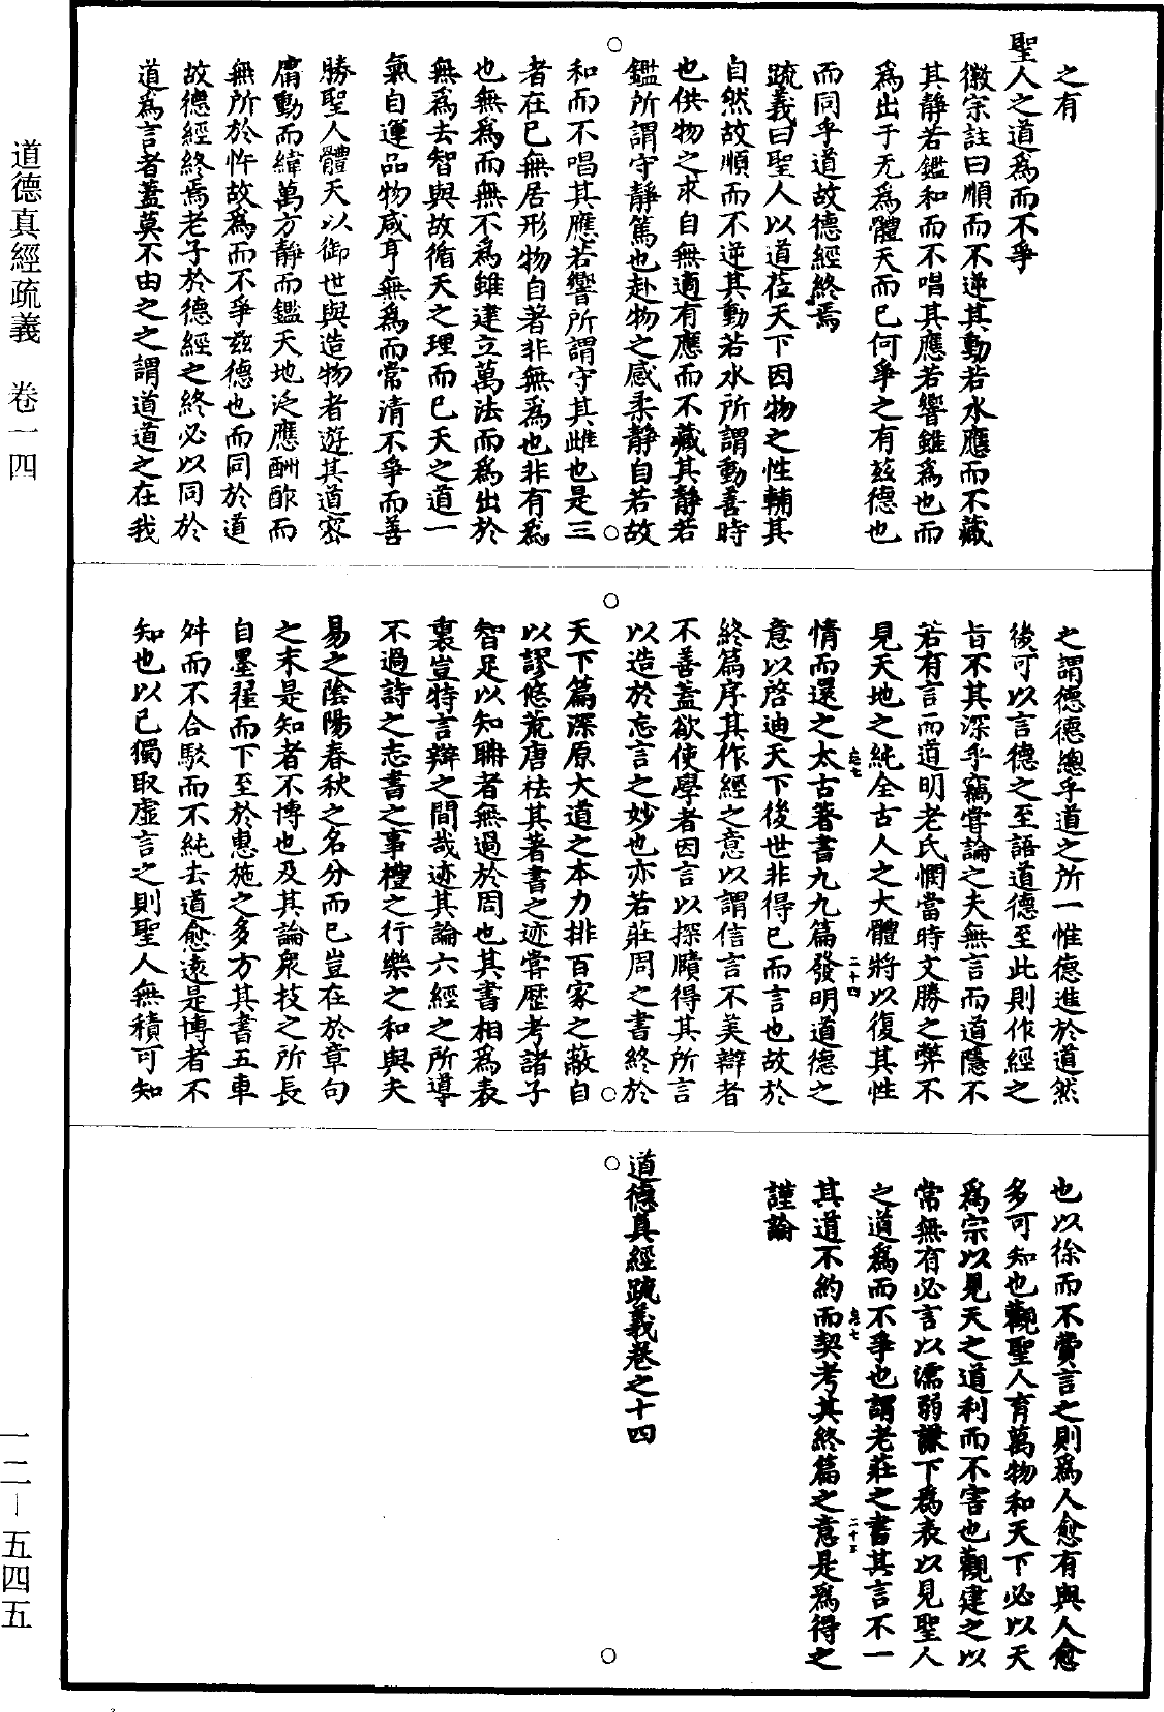 之有
聖人之道爲而不爭
徽宗註曰順而不逆其動若水應而不藏
其靜若鑑和而不唱其應若響雖爲也而
爲出于无爲體天而已何爭之有玆德也
而同乎道故德經終焉
疏義曰聖人以道莅天下因物之性輔其
自然故順而不逆其動若水所謂動善時
也供物之求自無適有應而不藏其靜若
鑑所謂守靜篤也赴物之感柔靜自若故
和而不唱其應若響所謂守其雌也是三
者在已無居形物自著非無爲也非有爲
也無爲而無不爲雖建立萬法而爲出於
無爲去智與故循天之理而已天之道一
氣自運品物咸亨無爲而常清不爭而善
勝聖人體天以御世與造物者遊其道密
庸動而緯萬方靜而鑑天地泛應酬酢而
無所於忤故爲而不爭玆德也而同於道
故德經終焉老子於德經之終必以同於
道爲言者蓋莫不由之之謂道道之在我
之謂德德總乎道之所一惟德進於道然
後可以言德之至語道德至此則作經之
旨不其深乎竊嘗論之夫無言而道隱不
若有言而道明老氏憫當時文勝之弊不
見天地之純全古人之大體將以復其性
情而還之太古著書九九篇發明道德之
意以啓迪天下後世非得已而言也故於
終篇序其作經之意以謂信言不美辯者
不善蓋欲使學者因言以探賾得其所言
以造於忘言之妙也亦若莊周之書終於
天下篇深原大道之本力排百家之蔽自
以謬悠荒唐袪其著書之迹嘗歷考諸子
智足以知聃者無過於周也其書相爲表
裏豈特言辯之間哉迹其論六經之所導
不過詩之志書之事禮之行樂之和與夫
易之陰陽春秋之名分而已豈在於章句
之末是知者不博也及其論衆技之所長
自墨翟而下至於惠施之多方其書五車
舛而不合駁而不純去道愈遠是博者不
知也以已獨取虛言之則聖人無積可知
也以徐而不費言之則爲人愈有與人愈
多可知也觀聖人育萬物和天下必以天
爲宗以見天之道利而不害也觀建之以
常無有必言以濡弱謙下爲表以見聖人
之道爲而不爭也謂老莊之書其言不一
其道不約而契考其終篇之意是爲得之
謹論
道德真經疏義卷之十四
道德真經疏義 卷一四
一二－五四五